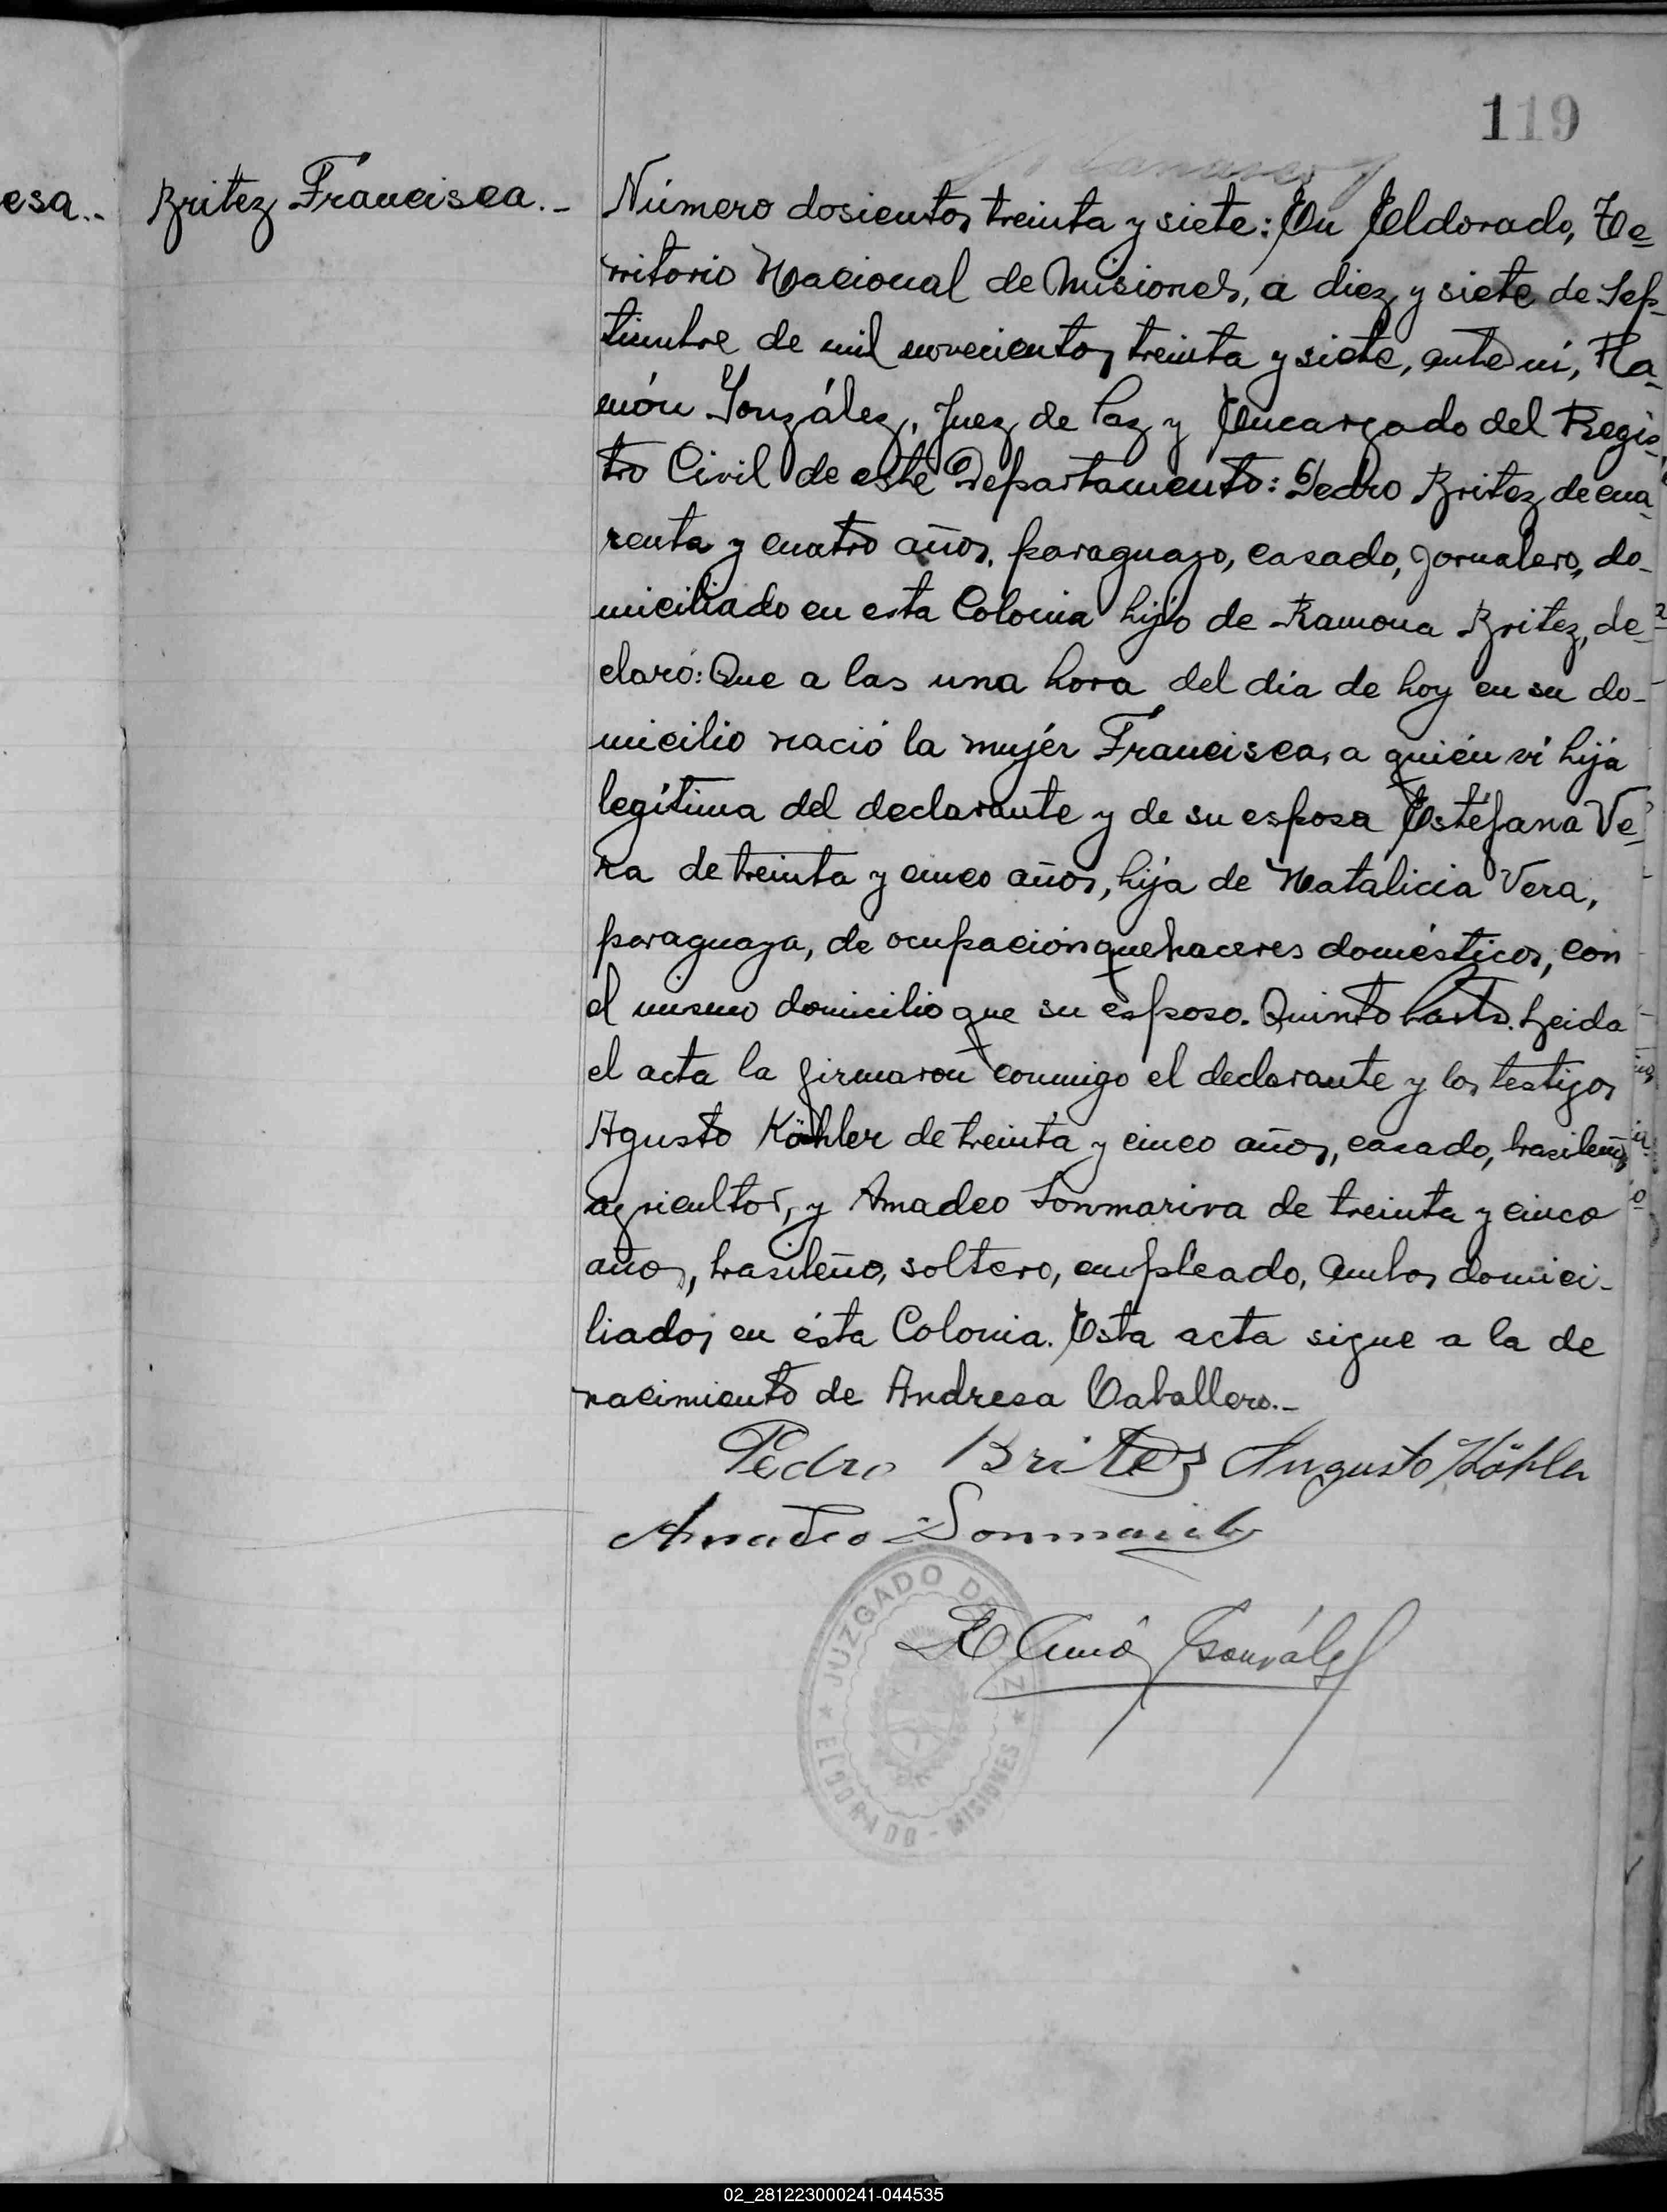 119
esa..
Britez Francisca._
Número dosientos treinta y siete: En Eldorado, Te-
rritorio Nacional de Misiones, a diez y siete de Sep-
tiembre de mil novecientos treinta y siete, ante mí, Ra-
món González, Juez de Paz y Encargado del Regis-
tro Civil de este Departamento: Pedro Britez, de cua-
renta y cuatro años, paraguayo, casado, jornalero, do-
miciliado en esta Colonia hijo de Ramona Britez, de-
claró: Que a las una hora del día de hoy en su do-
micilio nació la mujér Francisca, a quién ví hija
legítima del declarante y de su esposa Estéfana Ve-
ra de treinta y cinco años, hija de Natalicia Vera,
paraguaya, de ocupación quehaceres domésticos, con
el mismo domicilio que su esposo. Quinto parto. Leida
el acta la firmaron conmigo el declarante y los testigos
Agusto Köhler de treinta y cinco años, casado, brasileño,
agricultor, y Amadeo Sonmariva de treinta y cinco
años, brasileño, soltero, empleado, ambos domici-
liados en ésta Colonia. Esta acta sigue a la de
nacimiento de Andresa Caballero._
Pedro Britez Augusto Köhler
Amadeo Sonmariva
Ramón González
JUZGADO DE PAZ
ELDORADO - MISIONES
02_281223000241-044535